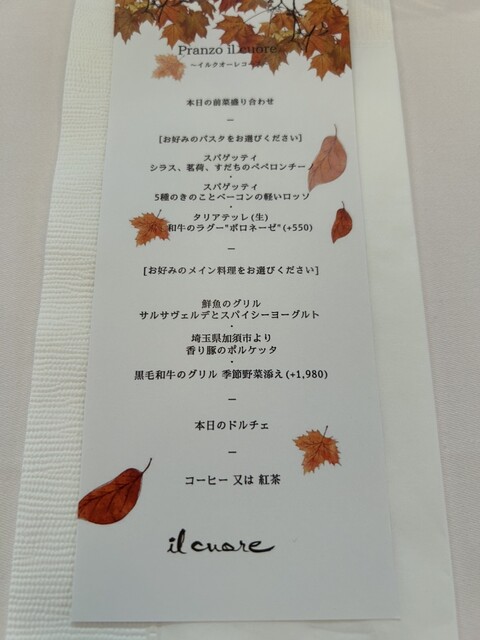 Pranzo il cuore
～イルクオーレコース～
本日の前菜盛り合わせ
ー
[お好みのパスタをお選びください]
スパゲッティ
シラス、茗荷、すだちのペペロンチーノ
・
スパゲッティ
5種のきのことベーコンの軽いロッソ
・
タリアテッレ(生)
和牛のラグー"ボロネーゼ"(+550)
ー
[お好みのメイン料理をお選びください]
鮮魚のグリル
サルサヴェルデとスパイシーヨーグルト
・
埼玉県加須市より
香り豚のポルケッタ
・
黒毛和牛のグリル 季節野菜添え(+1,980)
ー
本日のドルチェ
ー
コーヒー 又は 紅茶
il cuore